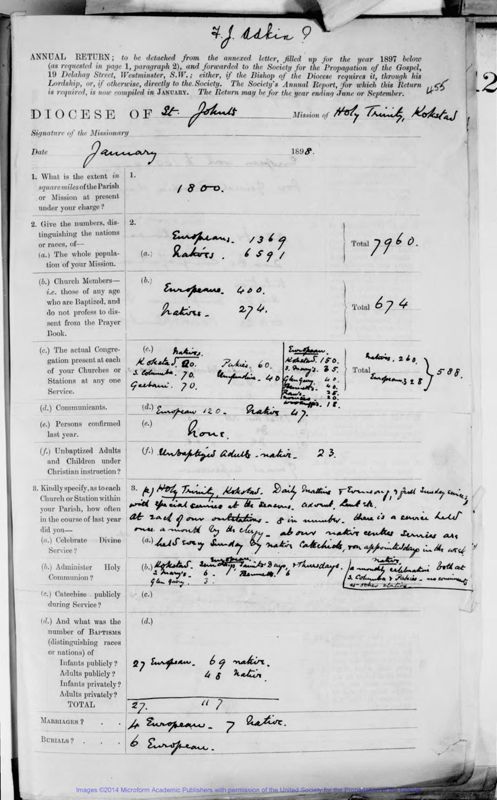 F. J. Askin ?
ANNUAL RETURN; to be detached from the annexed letter, filled up for the year 1897 below
(as requested in page 1, paragraph 2), and forwarded to the Society for the Propagation of the Gospel,
19 Delahay Street, Westminster, S.W.; either, if the Bishop of the Diocese requires it, through his
Lordship, or, if otherwise, directly to the Society. The Society's Annual Report, for which this Return
is required, is now compiled in JANUARY. The Return may be for the year ending June or September.
455
DIOCESE OF St. John's Mission of Holy Trinity, Kokstad
Signature of the Missionary
Date January 1898.
1. What is the extent in
square miles of the Parish
or Mission at present
under your charge?
1.
1800.
2. Give the numbers, dis-
tinguishing the nations
or races, of—
(a.) The whole popula-
tion of your Mission.
2.
Europeans. 1369
(a.) Natives. 6591
Total 7960.
(b.) Church Members—
i.e. those of any age
who are Baptized, and
do not profess to dis-
sent from the Prayer
Book.
(b.)
Europeans. 400.
Natives - 274.
Total 674
(c.) The actual Congre-
gation present at each
of your Churches or
Stations at any one
Service.
(c.) Natives.
Kokstad 20.
S. Columba. 70
70.
60.
40
European.
Kokstad. 150.
S. Mary's. 35.
Glengarry 40.
40.
25.
20.
18.
Natives. 260.
Total
Europeans 328
588.
(d.) Communicants.
(d.) European 120. Native 47.
(e.) Persons confirmed
last year.
(e.)
None.
(f.) Unbaptized Adults
and Children under
Christian instruction?
(f.) Unbaptized Adults - native - 23.
3. Kindly specify, as to each
Church or Station within
your Parish, how often
in the course of last year
did you—
(a.) Celebrate Divine
Service?
3. (a) Holy Trinity, Kokstad. Daily Mattins & Evensong, & full Sunday services,
with special services at the seasons. Advent, Lent &c.
At each of our outstations - 8 in number. there is a service held
once a month by the clergy - at our native centres services are
(a.) held every Sunday by native Catechists, on appointed days in the week
(b.) Administer Holy
Communion?
(b.) European
Kokstad. Sundays, Saints' Days, & Thursdays.
S. Mary's. 6. 6
Glengarry. 3.
native.
a monthly celebration both at
S. Columba &
(c.) Catechise publicly
during Service?
(c.)
(d.) And what was the
number of BAPTISMS
(distinguishing races
or nations) of
Infants publicly?
Adults publicly?
Infants privately?
Adults privately?
TOTAL
(d.)
27 European. 69 native.
48 native.
27. 117
MARRIAGES?
4 European - 7 Native.
BURIALS?
6 European.
2
Images ©2014 Microform Academic Publishers with permission of the United Society for the Propagation of the Gospel